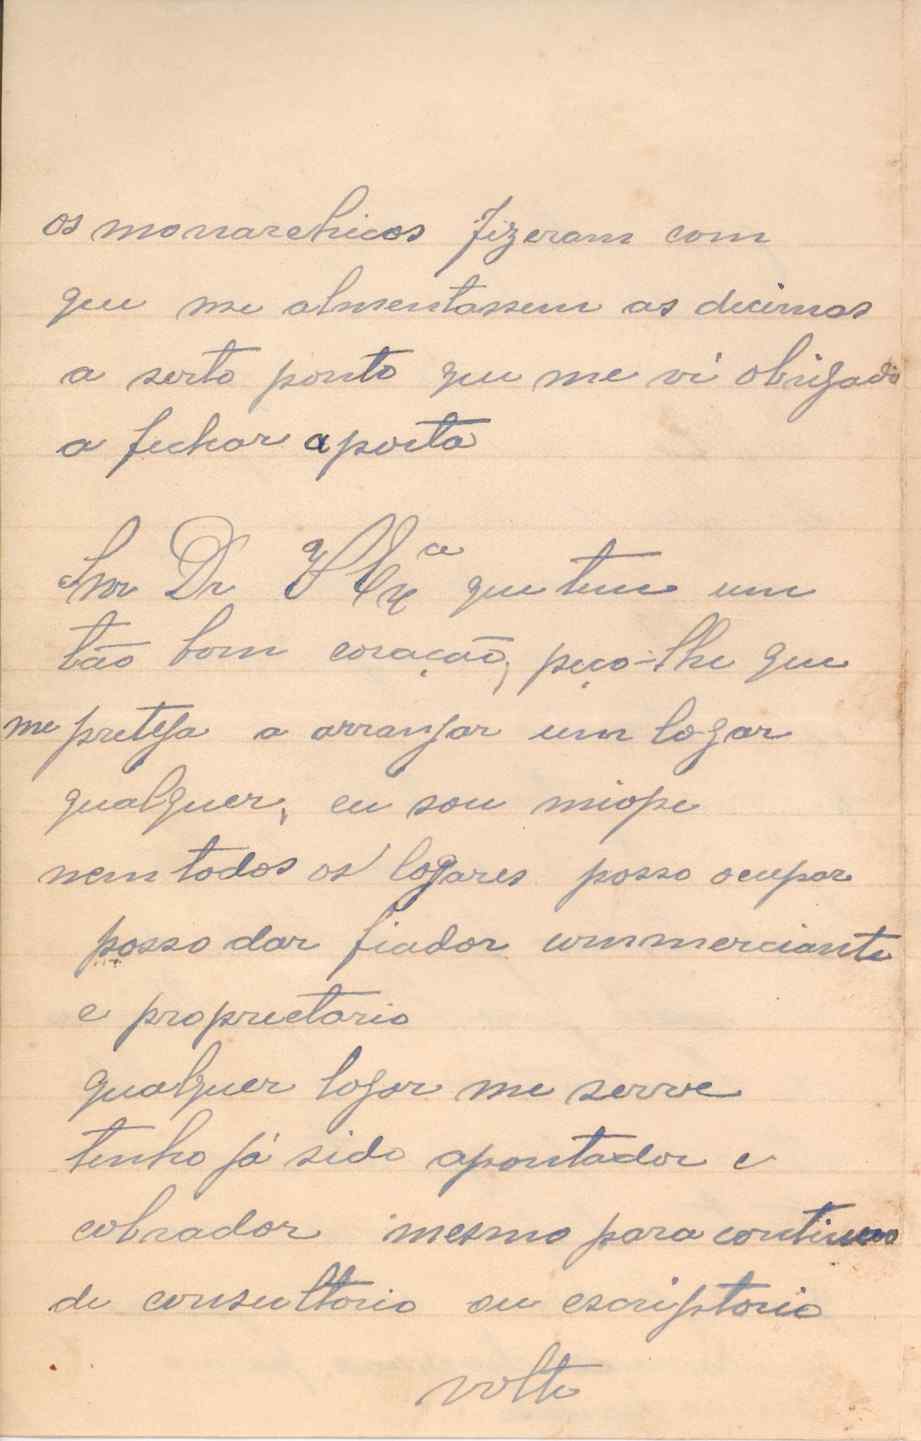 os monarchicos fizeram com
que me almentassem as decimas
a serto ponto que me vi obrigado
a fechar a porta
Snr Dr V Exª que tem um
tão bom coração, peço-lhe que
me preteja a arranjar um logar
qualquer, eu sou miope
nem todos os logares posso ocupar
posso dar fiador commerciante
e proprietario
qualquer logar me serve
tenho já sido apontador e
cobrador mesmo para continuo
de consultorio ou escriptorio
volte